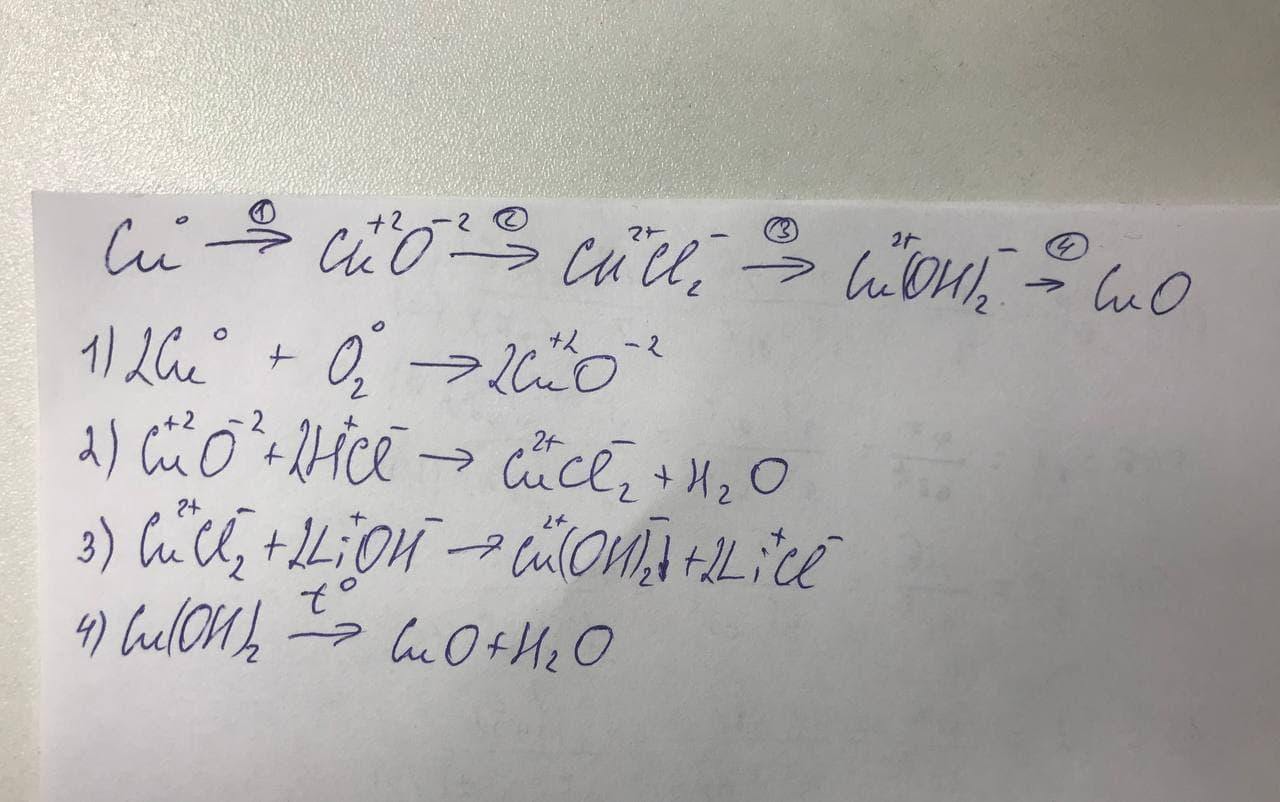 Cu⁰ →① Cu⁺²O⁻² →② Cu²⁺Cl₂⁻ →③ Cu²⁺(OH)₂⁻ →④ CuO
1) 2Cu⁰ + O₂⁰ → 2Cu⁺²O⁻²
2) Cu⁺²O⁻² + 2H⁺Cl⁻ → Cu²⁺Cl₂⁻ + H₂O
3) Cu²⁺Cl₂⁻ + 2Li⁺OH⁻ → Cu²⁺(OH)₂⁻↓ + 2Li⁺Cl⁻
4) Cu(OH)₂ →t° CuO + H₂O